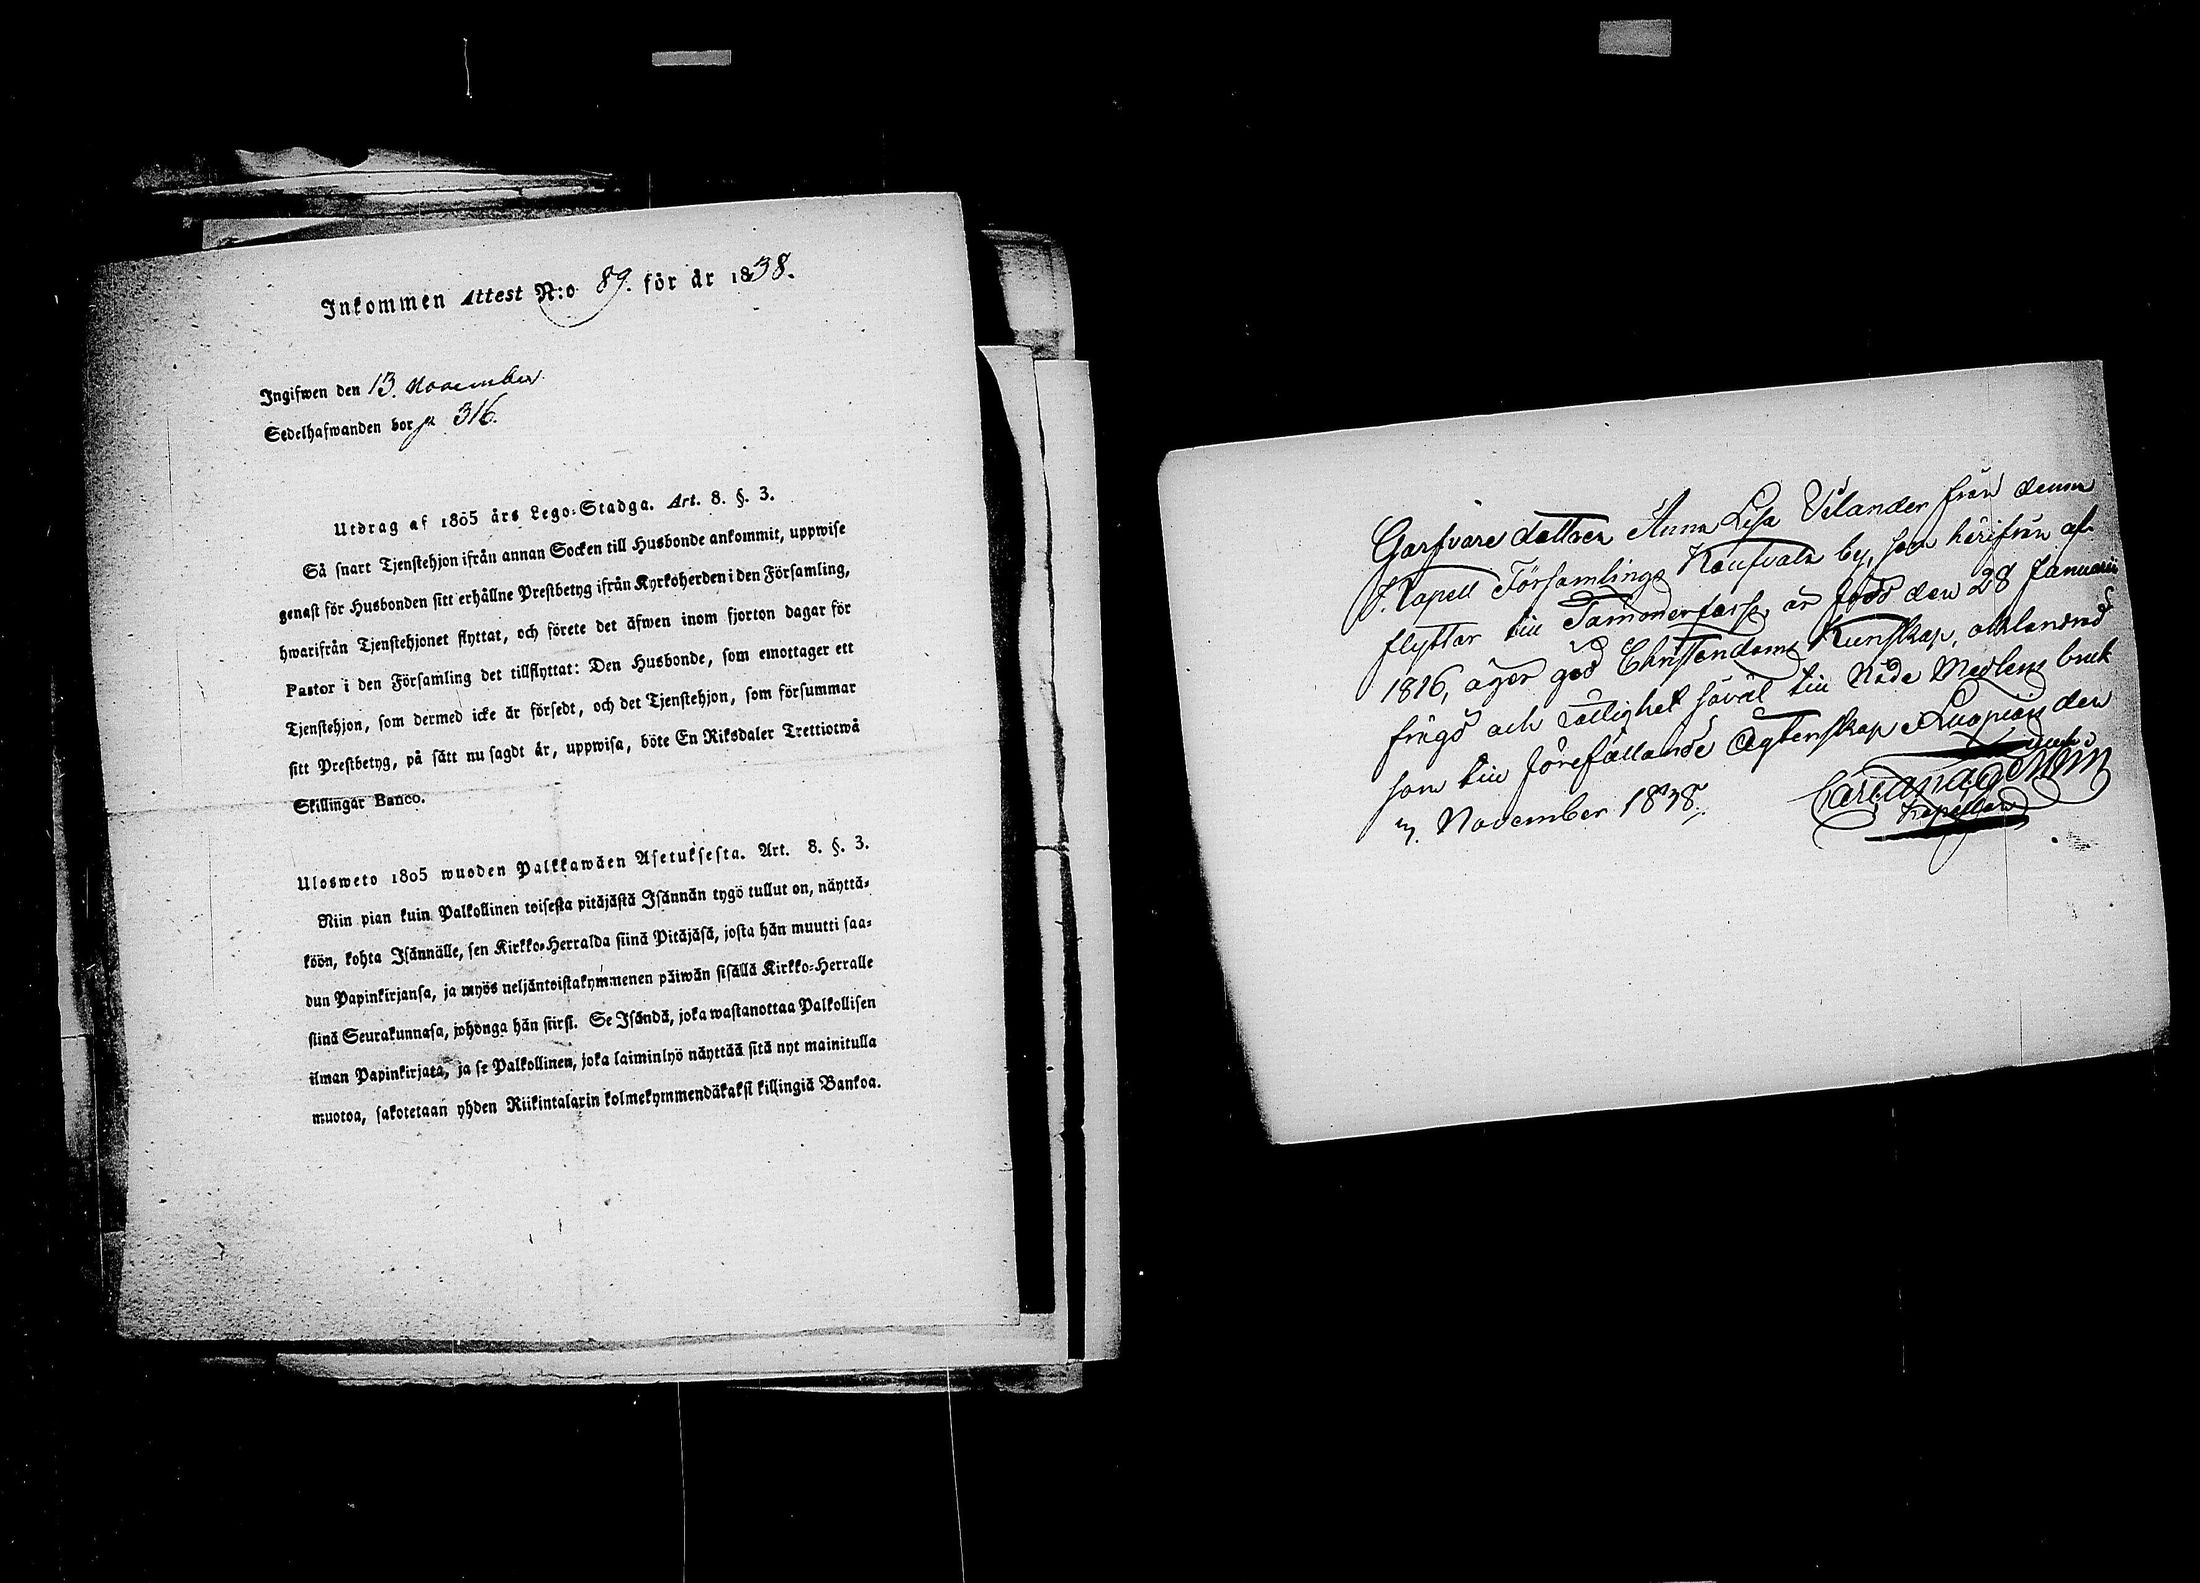 Inkommen Attest N:o 89. för år 1838.
Ingifwen den 13. November
Sedelhafwanden bor p 316.
Utdrag af 1805 års Lego-Stadga. Art. 8. §. 3.
Så snart Tjenstehjon ifrån annan Socken till Husbonde ankommit, uppwise
genast för Husbonden sitt erhållne Prestbetyg ifrån Kyrkoherden i den Församling,
hwarifrån Tjenstehjonet flyttat, och förete det äfwen inom fjorton dagar för
Pastor i den Församling det tillflyttat: Den Husbonde, som emottager ett
Tjenstehjon, som dermed icke är försedt, och det Tjenstehjon, som försummar
sitt Prestbetyg, på sätt nu sagdt är, uppwisa, böte En Riksdaler Trettiotwå
Skillingar Banco.
Ulosweto 1805 wuoden Palkkawäen Asetuksesta. Art. 8. §. 3.
Niin pian kuin Palkollinen toisesta pitäjästä Isännän tygö tullut on, näyttä-
köön, kohta Isännälle, sen Kirkko-Herralda siinä Pitäjäsä, josta hän muutti saa-
dun Papinkirjansa, ja myös neljäntoistakymmenen päiwän sisällä Kirkko-Herralle
siinä Seurakunnasa, johonga hän siirsi. Se Isändä, joka wastanottaa Palkollisen
ilman Papinkirjata, ja se Palkollinen, joka laiminlyö näyttää sitä nyt mainitulla
muotoa, sakotetaan yhden Riikintalarin kolmekymmendäkaksi killingiä Bankoa.
Garfvare dottren Anna Lisa Vilander från denna
Kapell Församlings by, som härifrån af-
flyttar till Tammerfors, är född den 28 Januarii
1816, äger god Christendoms Kunskap, oklandrad
frägd och ledighet såväl till Nåde Medlens bruk
som till förefallande Ägtenskap. Luopiois den
7. November 1838.
Kapellan